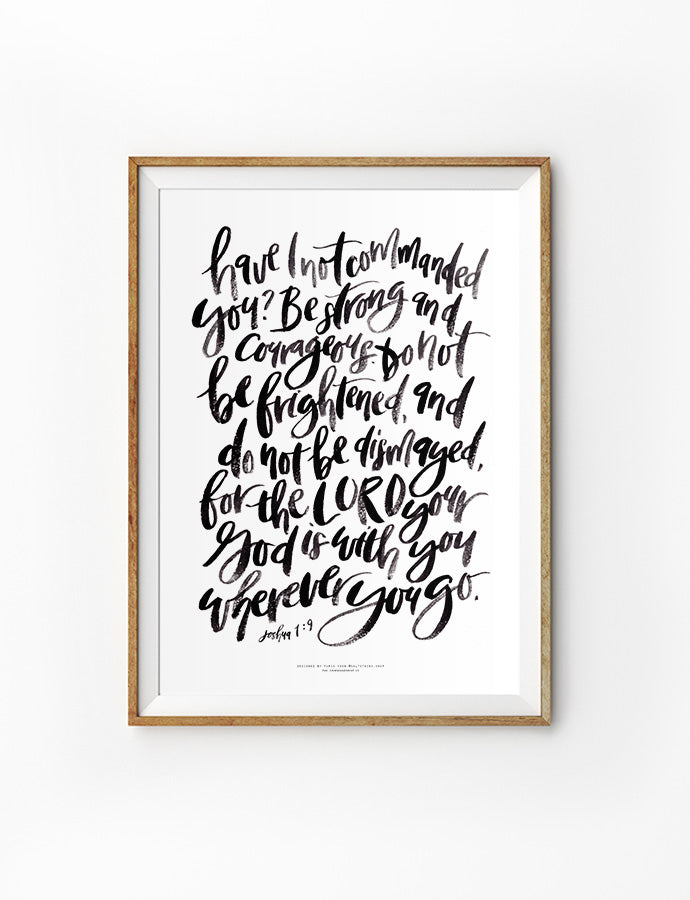 have I not commanded
you? Be strong and
courageous. Do not
be frightened, and
do not be dismayed,
for the LORD your
God is with you
wherever you go.
Joshua 1:9
DESIGNED BY